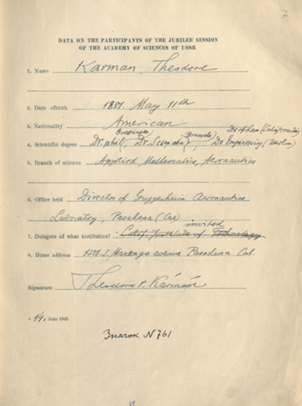 DATA ON THE PARTICIPANTS OF THE JUBILEE SESSION
OF THE ACADEMY OF SCIENCES OF USSR
1. Name Karman Theodore
2. Date of birth 1881. May 11th
3. Nationality American
4. Scientific degree Dr. phil,
5. Branch of science Applied Mathematics, Aeronautics
6. Office held Director of Guggenheim Aeronautics
Laboratory, Pasadena (Cal)
invited
7. Delegate of what institution? Calif. Institute of Technology
8. Home address 1501 S. Marengo avenue Pasadena Cal.
Signature Theodore v. Kármán
June 1945
Значок N 761